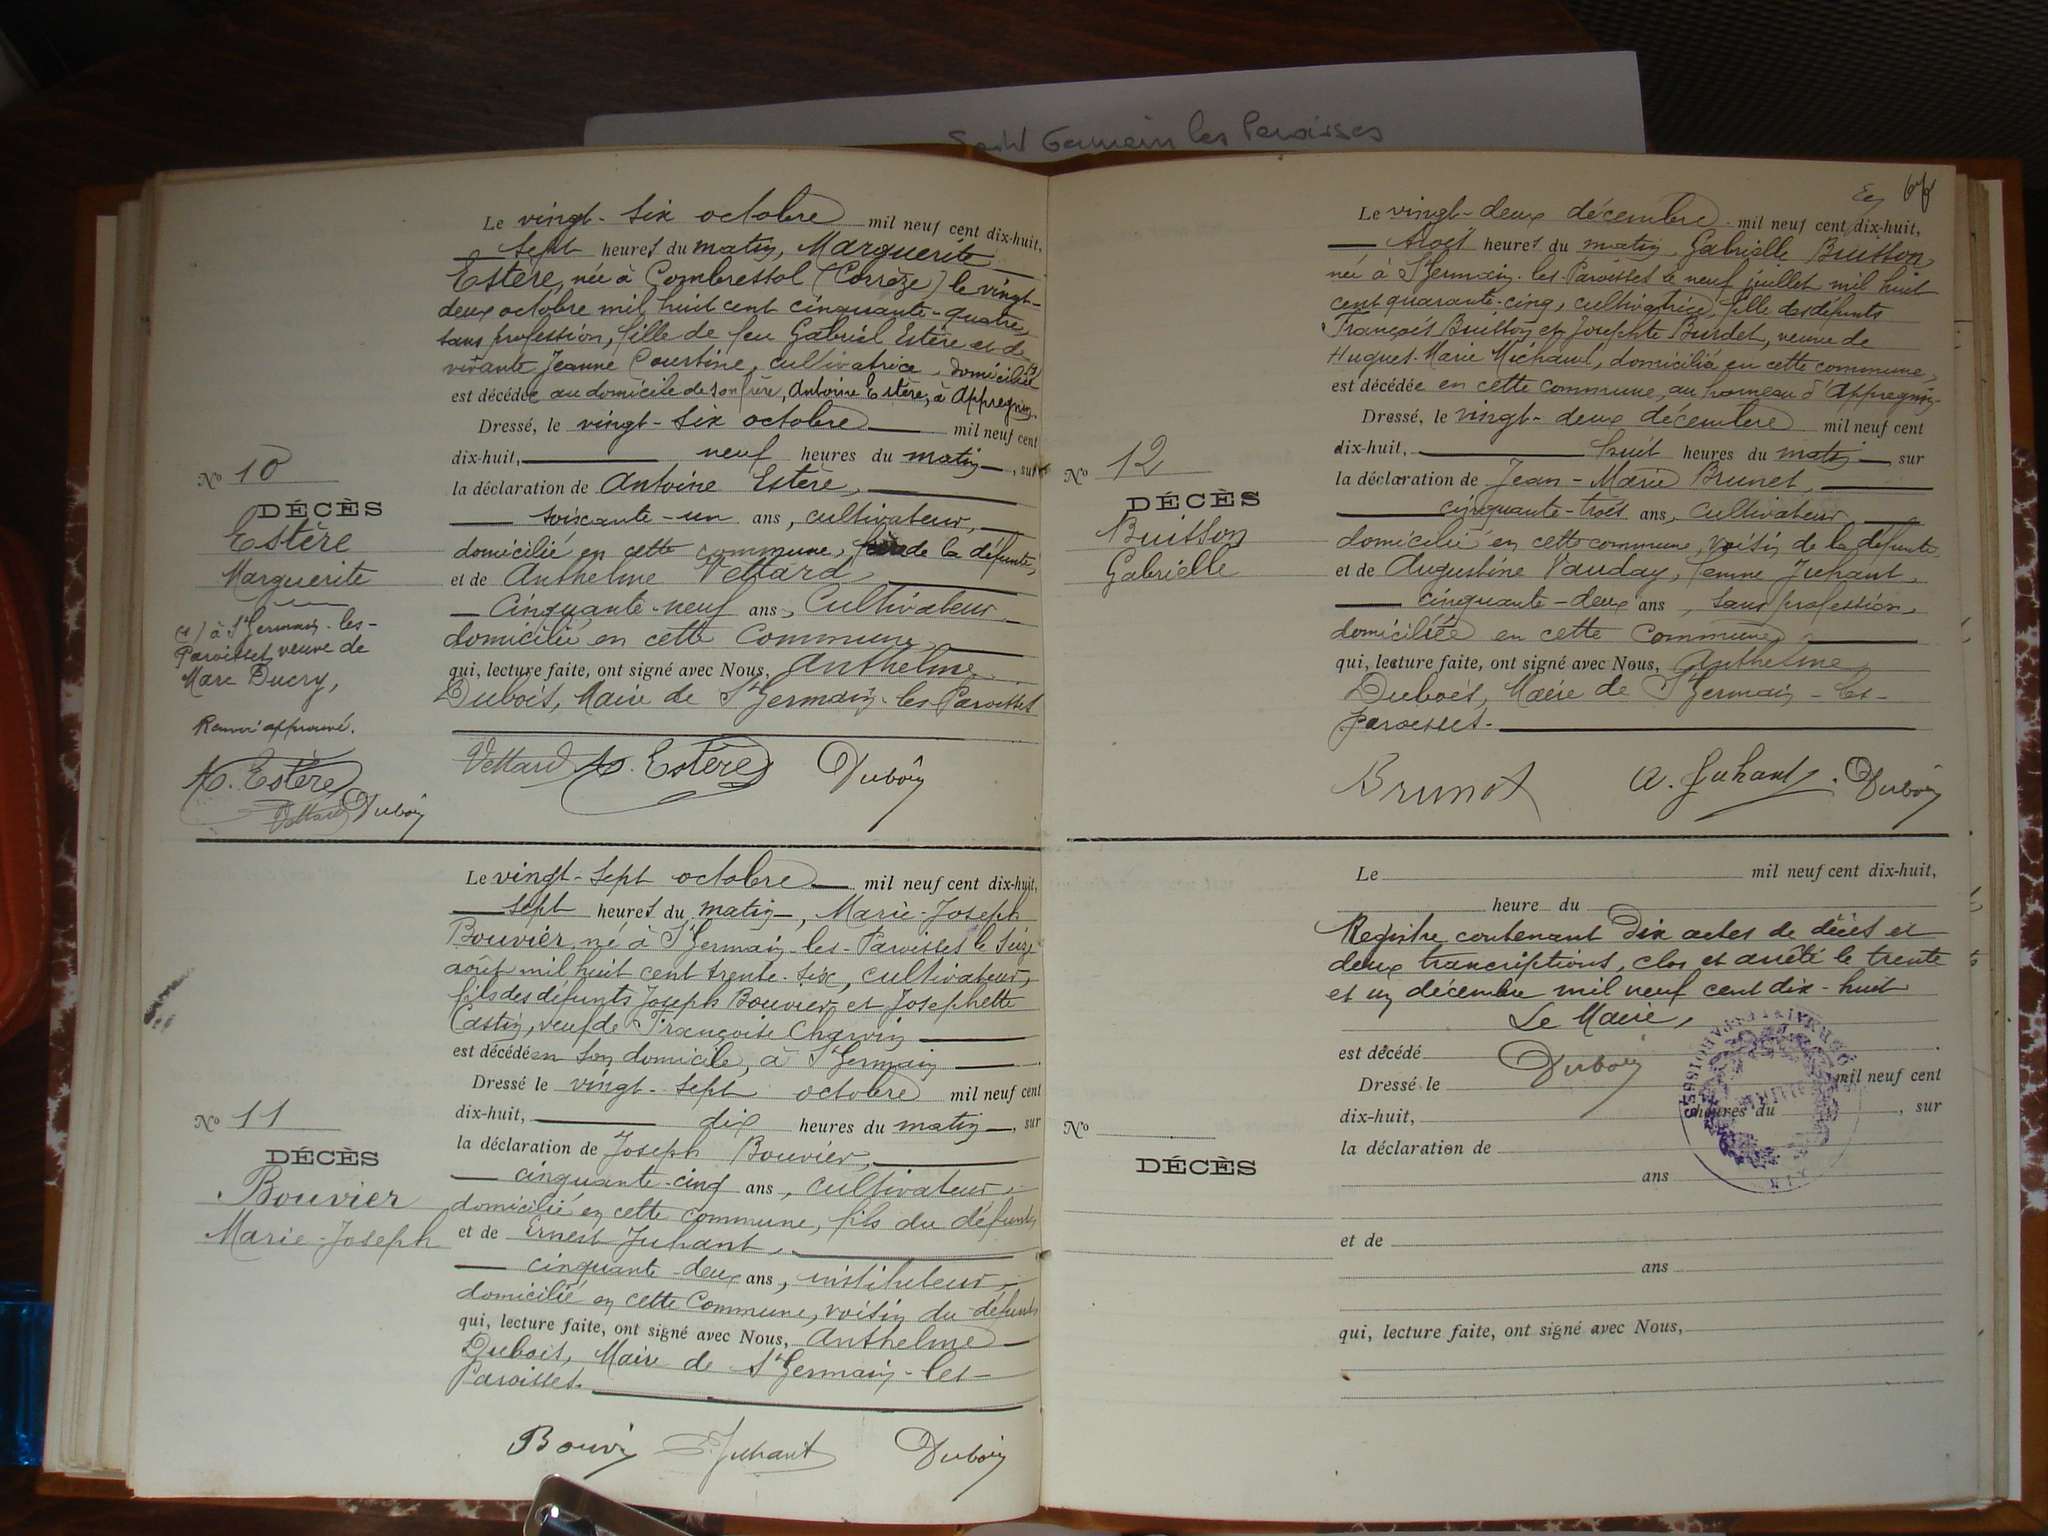 Saint Germain les Paroisses
Le vingt-six octobre mil neuf cent dix-huit,
sept heures du matin, Marguerite
Estère, née à Combressol (Corrèze) le vingt-
deux octobre mil huit cent cinquante-quatre,
sans profession, fille de feu Gabriel Estère et de
vivante Jeanne Courtine, cultivatrice, domiciliée (1)
est décédée au domicile de son frère, Antoine Estère, à Appregnin.
Dressé, le vingt-six octobre mil neuf cent
dix-huit, neuf heures du matin, sur
la déclaration de Antoine Estère,
soixante-un ans, cultivateur,
domicilié en cette commune, frère de la défunte,
et de Anthelme Vettard,
cinquante-neuf ans, Cultivateur
domicilié en cette Commune,
qui, lecture faite, ont signé avec Nous, Anthelme
Dubois, Maire de St Germain-les-Paroisses
Vettard A. Estère Dubois
No 10
DÉCÈS
Estère
Marguerite
(1) à St Germain-les-
Paroisses, veuve de
Marc Ducry,
Renvoi approuvé.
A. Estère
Vettard Dubois
Le vingt-sept octobre mil neuf cent dix-huit,
sept heures du matin, Marie-Joseph
Bouvier, né à St Germain-les-Paroisses le seize
août mil huit cent trente-six, cultivateur,
fils des défunts Joseph Bouvier et Josephette
Castin, veuf de Françoise Charvin
est décédé en son domicile, à St Germain
Dressé le vingt-sept octobre mil neuf cent
dix-huit, dix heures du matin, sur
la déclaration de Joseph Bouvier,
cinquante-cinq ans, cultivateur,
domicilié en cette commune, fils du défunt,
et de Ernest Juhant,
cinquante-deux ans, instituteur,
domicilié en cette Commune, voisin du défunt
qui, lecture faite, ont signé avec Nous, Anthelme
Dubois, Maire de St Germain-les-
Paroisses.
Bouvier E. Juhant Dubois
No 11
DÉCÈS
Bouvier
Marie-Joseph
Le vingt-deux décembre mil neuf cent dix-huit,
trois heures du matin, Gabrielle Buisson,
née à St Germain-les-Paroisses le neuf juillet mil huit
cent quarante-cinq, cultivatrice, fille des défunts
François Buisson et Josephte Burdet, veuve de
Hugues-Marie Michaud, domiciliée en cette commune,
est décédée en cette commune, au hameau d'Appregnin.
Dressé, le vingt-deux décembre mil neuf cent
dix-huit, huit heures du matin, sur
la déclaration de Jean-Marie Brunet,
cinquante-trois ans, cultivateur
domicilié en cette commune, voisin de la défunte,
et de Augustine Vauday, femme Juhant,
cinquante-deux ans, sans profession,
domiciliée en cette commune,
qui, lecture faite, ont signé avec Nous, Anthelme
Dubois, Maire de St Germain-les-
Paroisses.
Brunet A. Juhant Dubois
No 12
DÉCÈS
Buisson
Gabrielle
Le mil neuf cent dix-huit,
heure du
Registre contenant dix actes de décès et
deux trancriptions, clos et arrêté le trente
et un décembre mil neuf cent dix-huit
Le Maire,
Dubois
est décédé
Dressé le mil neuf cent
dix-huit, heures du , sur
la déclaration de
ans
et de
ans
qui, lecture faite, ont signé avec Nous,
No
DÉCÈS